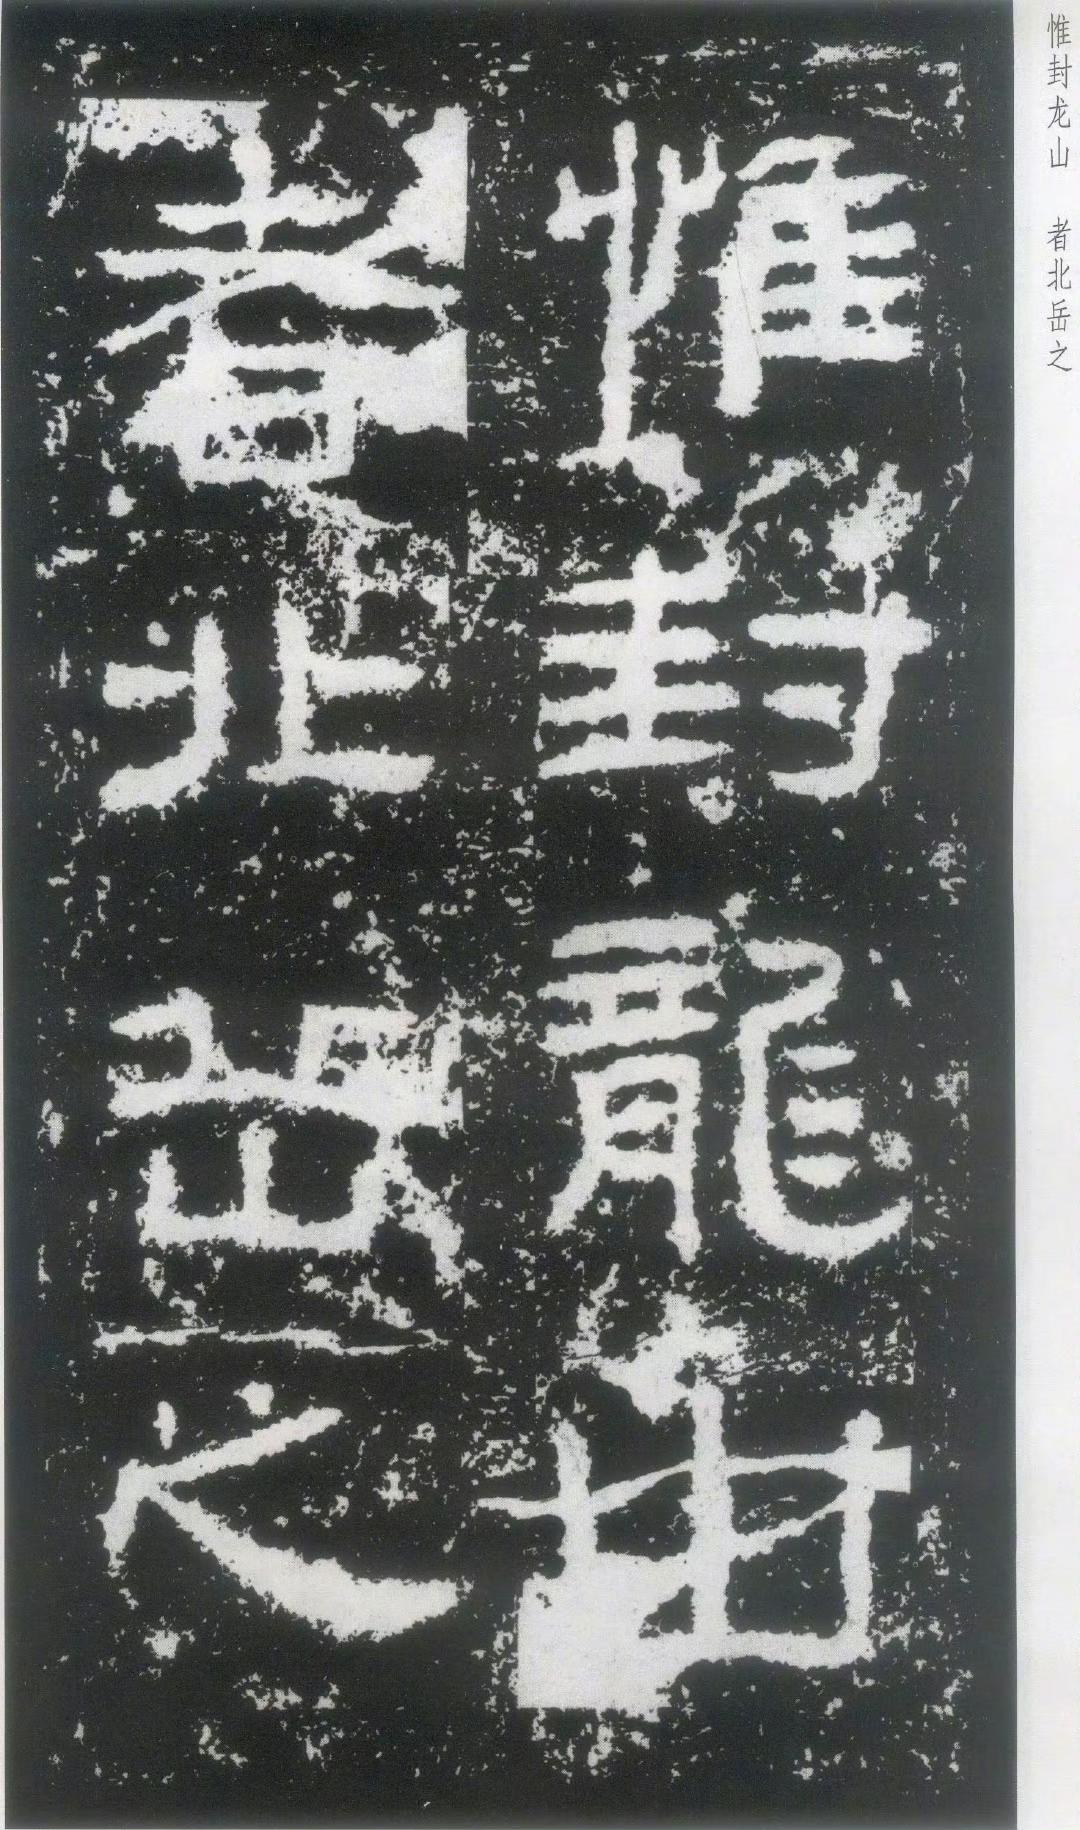 惟封龙山 者北岳之
惟封龍山
者北岳之